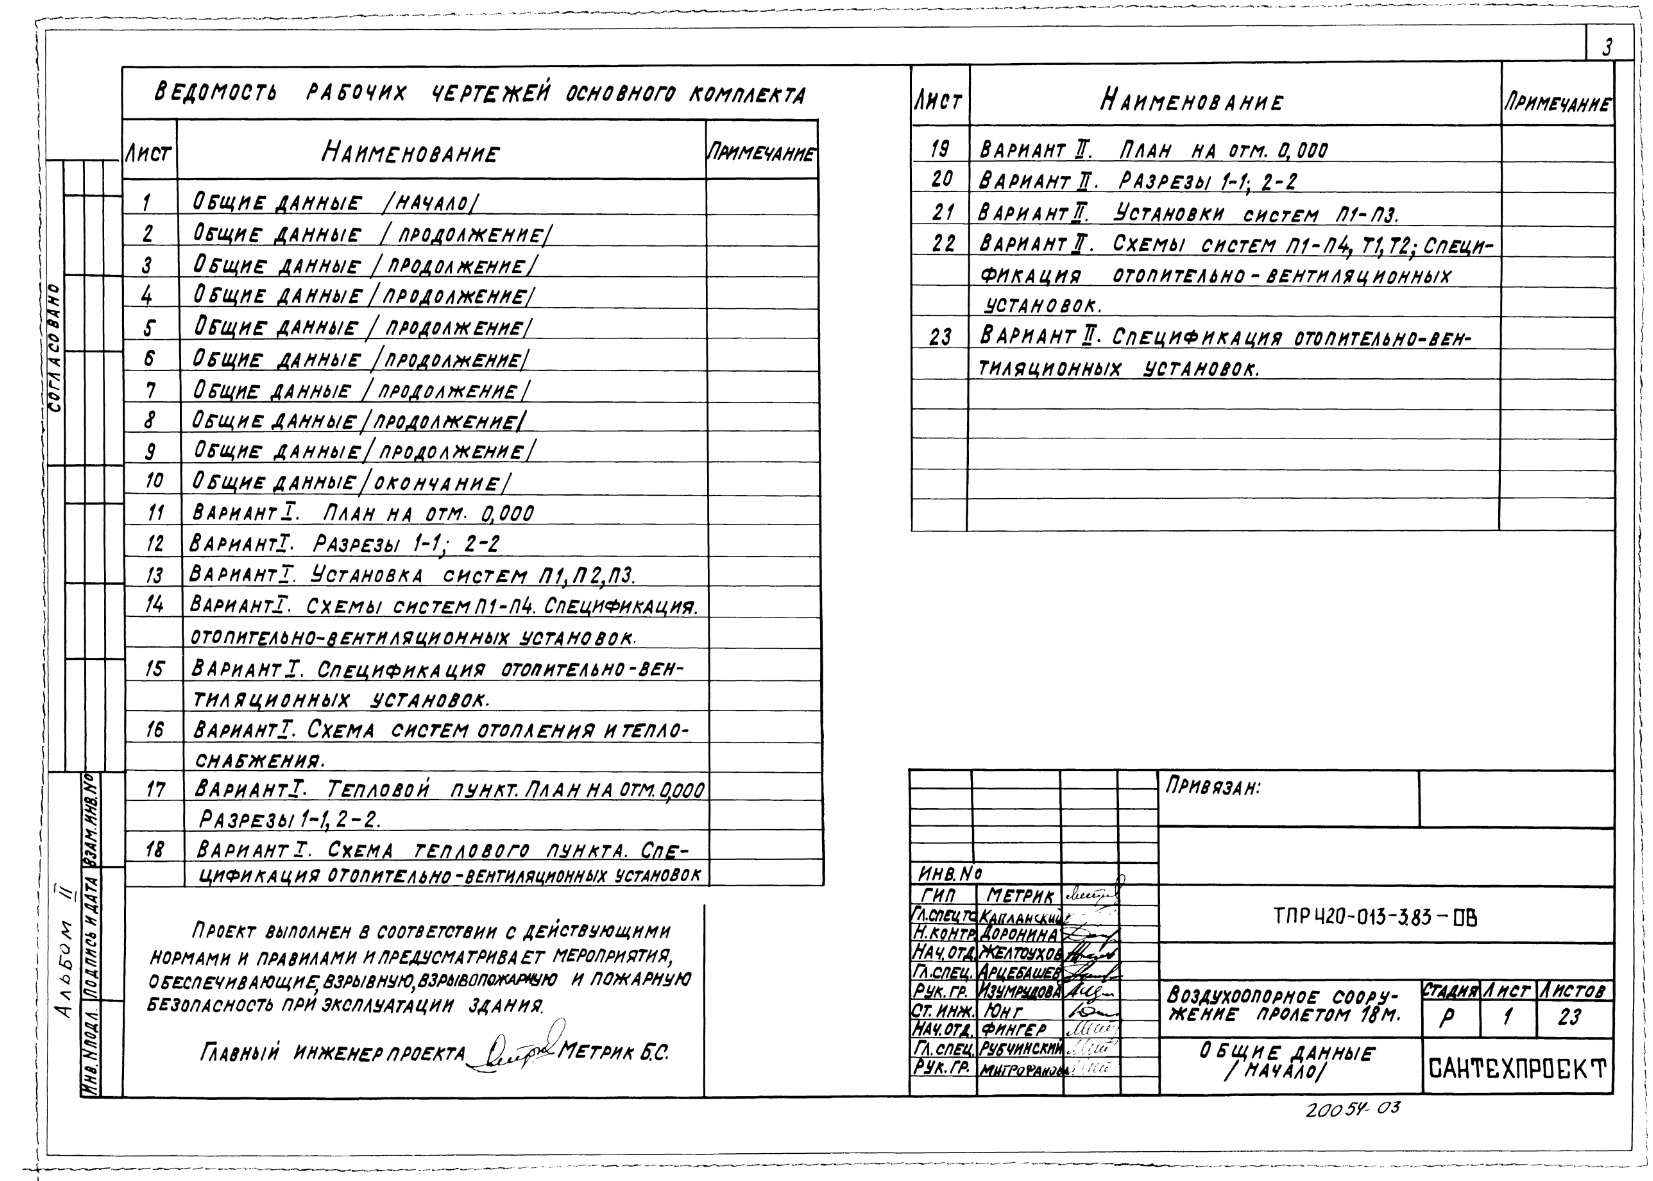 3
Ведомость рабочих чертежей основного комплекта
Лист Наименование Примечание
1 Общие данные /начало/
2 Общие данные /продолжение/
3 Общие данные /продолжение/
4 Общие данные /продолжение/
5 Общие данные /продолжение/
6 Общие данные /продолжение/
7 Общие данные /продолжение/
8 Общие данные /продолжение/
9 Общие данные /продолжение/
10 Общие данные /окончание/
11 Вариант I. План на отм. 0,000
12 Вариант I. Разрезы 1-1; 2-2
13 Вариант I. Установка систем П1, П2, П3.
14 Вариант I. Схемы систем П1-П4. Спецификация.
отопительно-вентиляционных установок.
15 Вариант I. Спецификация отопительно-вен-
тиляционных установок.
16 Вариант I. Схема систем отопления и тепло-
снабжения.
17 Вариант I. Тепловой пункт. План на отм. 0,000
Разрезы 1-1, 2-2.
18 Вариант I. Схема теплового пункта. Спе-
цификация отопительно-вентиляционных установок
Проект выполнен в соответствии с действующими
нормами и правилами и предусматривает мероприятия,
обеспечивающие взрывную, взрывопожарную и пожарную
безопасность при эксплуатации здания.
Главный инженер проекта Метрик Б.С.
Лист Наименование Примечание
19 Вариант II. План на отм. 0,000
20 Вариант II. Разрезы 1-1; 2-2
21 Вариант II. Установки систем П1-П3.
22 Вариант II. Схемы систем П1-П4, Т1, Т2; Специ-
фикация отопительно-вентиляционных
установок.
23 Вариант II. Спецификация отопительно-вен-
тиляционных установок.
Привязан:
Инв. №
ГИП Метрик
Гл. спец ТС Капланский
Н. контр Доронина
Нач. отд. Желтоухов
Гл. спец. Арцебашев
Рук. гр. Изумрудова
Ст. инж. Юнг
Нач. отд. Фингер
Гл. спец. Рубчинский
Рук. гр. Митрофанова
ТПР 420-013-3.83-ОВ
Воздухоопорное соору-
жение пролетом 18м.
Стадия Лист Листов
Р 1 23
Общие данные
/начало/
САНТЕХПРОЕКТ
20054-03
Согласовано
Альбом II
Инв. № подл. Подпись и дата Взам. инв. №